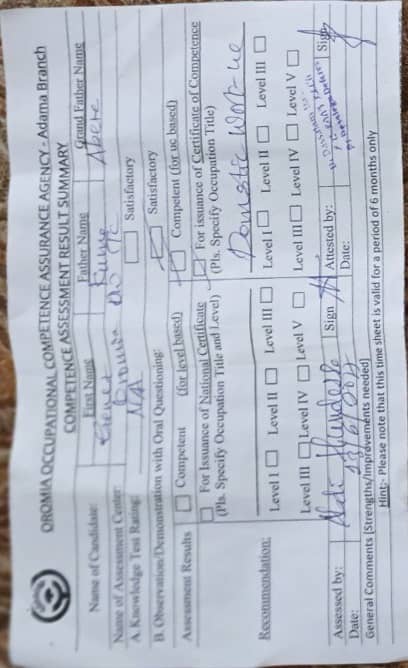 OROMIA OCCUPATIONAL COMPETENCE ASSURANCE AGENCY - Adama Branch
COMPETENCE ASSESSMENT RESULT SUMMARY
First Name Father Name Grand Father Name
Name of Candidate: Abere
Name of Assessment Center: Oromia
A. Knowledge Test Rating: NA Satisfactory
B. Observation/Demonstration with Oral Questioning: Satisfactory
Assessment Results Competent (for level based) Competent (for uc based)
For Issuance of National Certificate
(Pls. Specify Occupation Title and Level)
For issuance of Certificate of Competence
(Pls. Specify Occupation Title)
Domestic Work
Recommendation:
Level I Level II Level III
Level III Level IV Level V
Level I Level II Level III
Level III Level IV Level V
Assessed by: Sign Attested by: Sign
Date: Date:
General Comments [Strengths/Improvements needed]
Hint:- Please note that this time sheet is valid for a period of 6 months only